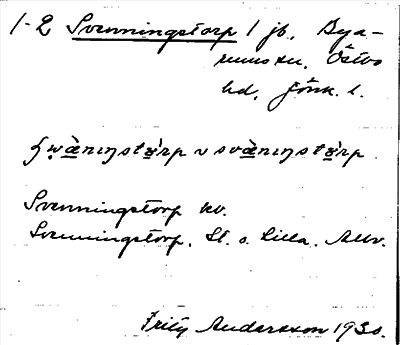 1-2 Svenningstorp 1 jb. Bya-
rums sn. Östbo
hd. Jönk. l.
svä̀nıŋstɑrp
Svenningstorp kv.
Svenningstorp. St. o. Lilla. Allv.
Fritz Andersson 1930.